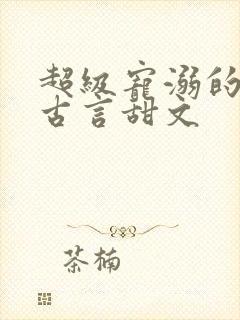 超级宠溺的
古言甜文
茶楠